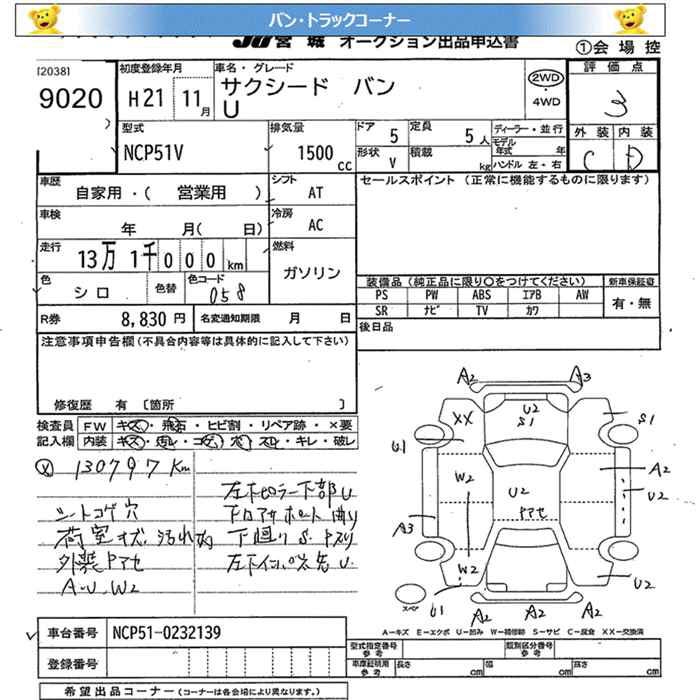 バン・トラックコーナー
JU宮城 オークション出品申込書
①会場控
[2038]
9020
初度登録年月
H21 11月
車名・グレード
サクシード バン
U
2WD
・
4WD
評価点
3
外装 内装
C D
型式
NCP51V
排気量
1500 cc
ドア 5
定員 5人
ディーラー・並行
モデル年式 年
形状 V
積載 kg
ハンドル 左・右
車歴
自家用・( 営業用 )
シフト AT
セールスポイント (正常に機能するものに限ります)
車検 年 月( 日)
冷房 AC
走行
13万1千000km
燃料
ガソリン
色
シロ
色替
色コード
058
装備品(純正品に限り○をつけてください)
新車保証書
PS PW ABS エアB AW
有・無
SR ナビ TV カワ
R券 8,830円
名変通知期限 月 日
後日品
注意事項申告欄(不具合内容等は具体的に記入して下さい)
修復歴 有 [箇所 ]
検査員 FW キズ・飛石・ヒビ割・リペア跡・×要
記入欄 内装 キズ・汚レ・コゲ・穴・スレ・キレ・破レ
130797Km
シートコゲ穴
荷室キズ、汚れ
外装Pアセ
A.U.W2
左下ピラー下部U
下廻りS.
A2 A3
XX
U2
S1
S1
U1
W2
U2
Pアセ
A2
U2
A3
W2
U2
U1
A2 A2 A2
スペア
A-キズ E-エクボ U-凹み W-補修跡 S-サビ C-腐食 XX-交換済
車台番号 NCP51-0232139
登録番号
型式指定番号 参考
類別区分番号 参考
車庫証明用 参考
長さ cm 幅 cm 高さ cm
希望出品コーナー(コーナーは各会場により異なります。)